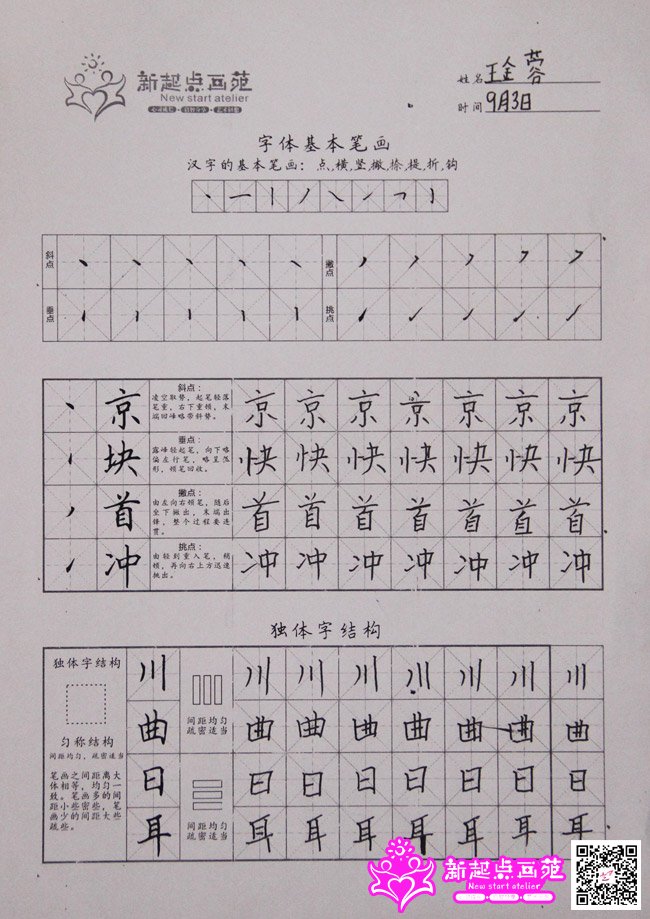 新起点画苑
New start atelier
姓名 王金蓉
时间 9月3日
字体基本笔画
汉字的基本笔画:点,横,竖,撇,捺,提,折,钩
斜点
撇点
垂点
挑点
京
斜点:
凌空取势,起笔轻落
笔重,右下重顿,末
端回峰略带斜势。
京 京 京 京 京 京 京
块
垂点:
露峰轻起笔,向下略
偏左行笔,略呈弧
形,顿笔回收。
快 快 快 快 快 快 快
首
撇点:
由左向右顿笔,随后
坐下撇出,末端出
锋,整个过程要连
贯。
首 首 首 首 首 首 首
冲
挑点:
由轻到重入笔,稍
顿,再向右上方迅速
挑出。
冲 冲 冲 冲 冲 冲 冲
独体字结构
独体字结构
匀称结构
间距均匀,疏密适当
笔画之间距离大
体相等,均匀一
致。笔画多的间
距小些密些,笔
画少的间距大些
疏些。
川
川 川 川 川 川 川 川
曲
间距均匀
疏密适当
曲 曲 曲 曲 曲 曲 曲
日
日 日 日 日 日 日 日
耳
间距均匀
疏密适当
耳 耳 耳 耳 耳 耳 耳
新起点画苑
New start atelier